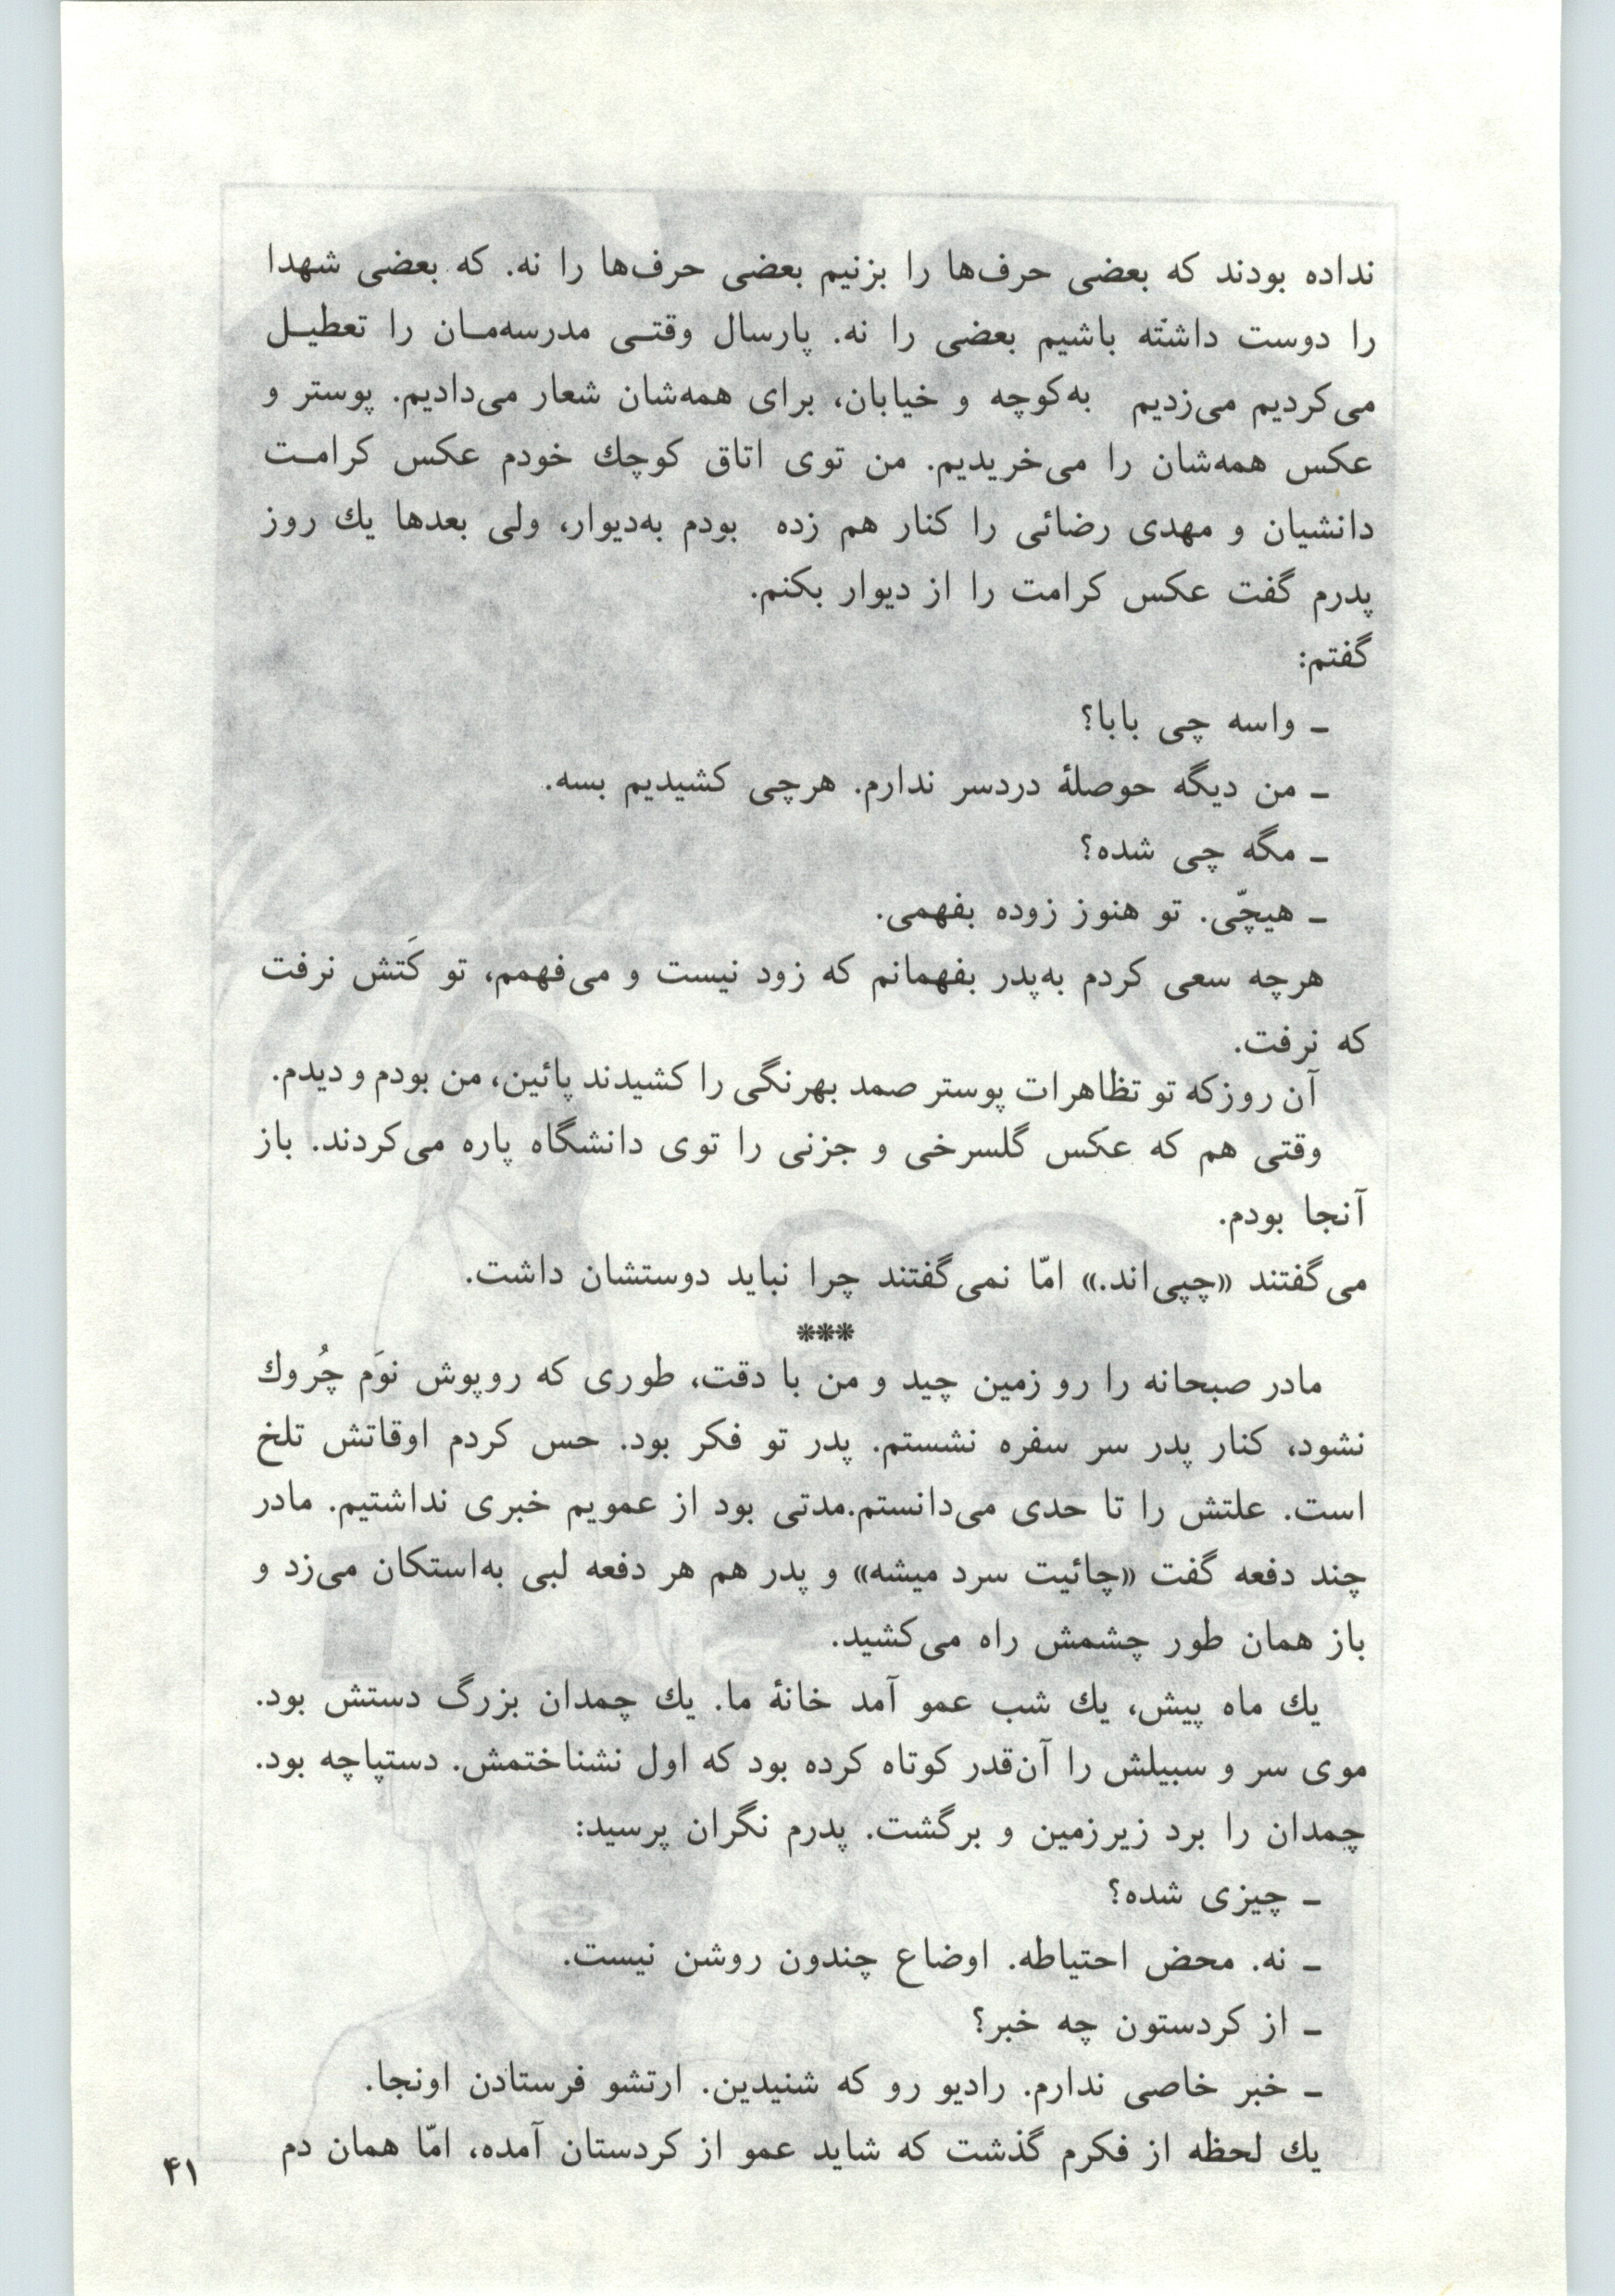 نداده بودند که بعضی حرف‌ها را بزنیم بعضی حرف‌ها را نه. که بعضی شهدا
را دوست داشته باشیم بعضی را نه. پارسال وقتـی مدرسه‌مـان را تعطیـل
می‌کردیم می‌زدیم به‌کوچه و خیابان، برای همه‌شان شعار می‌دادیم. پوستر و
عکس همه‌شان را می‌خریدیم. من توی اتاق کوچك خودم عکس کرامـت
دانشیان و مهدی رضائی را کنار هم زده بودم به‌دیوار، ولی بعدها یك روز
پدرم گفت عکس کرامت را از دیوار بکنم.
گفتم:
ـ واسه چی بابا؟
ـ من دیگه حوصلهٔ دردسر ندارم. هرچی کشیدیم بسه.
ـ مگه چی شده؟
ـ هیچّی. تو هنوز زوده بفهمی.
هرچه سعی کردم به‌پدر بفهمانم که زود نیست و می‌فهمم، تو کَتش نرفت
که نرفت.
آن روزکه تو تظاهرات پوستر صمد بهرنگی را کشیدند پائین، من بودم و دیدم.
وقتی هم که عکس گلسرخی و جزنی را توی دانشگاه پاره می‌کردند. باز
آنجا بودم.
می‌گفتند «چپی‌اند.» امّا نمی‌گفتند چرا نباید دوستشان داشت.
***
مادر صبحانه را رو زمین چید و من با دقت، طوری که روپوش نوَم چُروك
نشود، کنار پدر سر سفره نشستم. پدر تو فکر بود. حس کردم اوقاتش تلخ
است. علتش را تا حدی می‌دانستم.مدتی بود از عمویم خبری نداشتیم. مادر
چند دفعه گفت «چائیت سرد میشه» و پدر هم هر دفعه لبی به‌استکان می‌زد و
باز همان طور چشمش راه می‌کشید.
یك ماه پیش، یك شب عمو آمد خانهٔ ما. یك چمدان بزرگ دستش بود.
موی سر و سبیلش را آن‌قدر کوتاه کرده بود که اول نشناختمش. دستپاچه بود.
چمدان را برد زیرزمین و برگشت. پدرم نگران پرسید:
ـ چیزی شده؟
ـ نه. محض احتیاطه. اوضاع چندون روشن نیست.
ـ از کردستون چه خبر؟
ـ خبر خاصی ندارم. رادیو رو که شنیدین. ارتشو فرستادن اونجا.
یك لحظه از فکرم گذشت که شاید عمو از کردستان آمده، امّا همان دم
۴۱